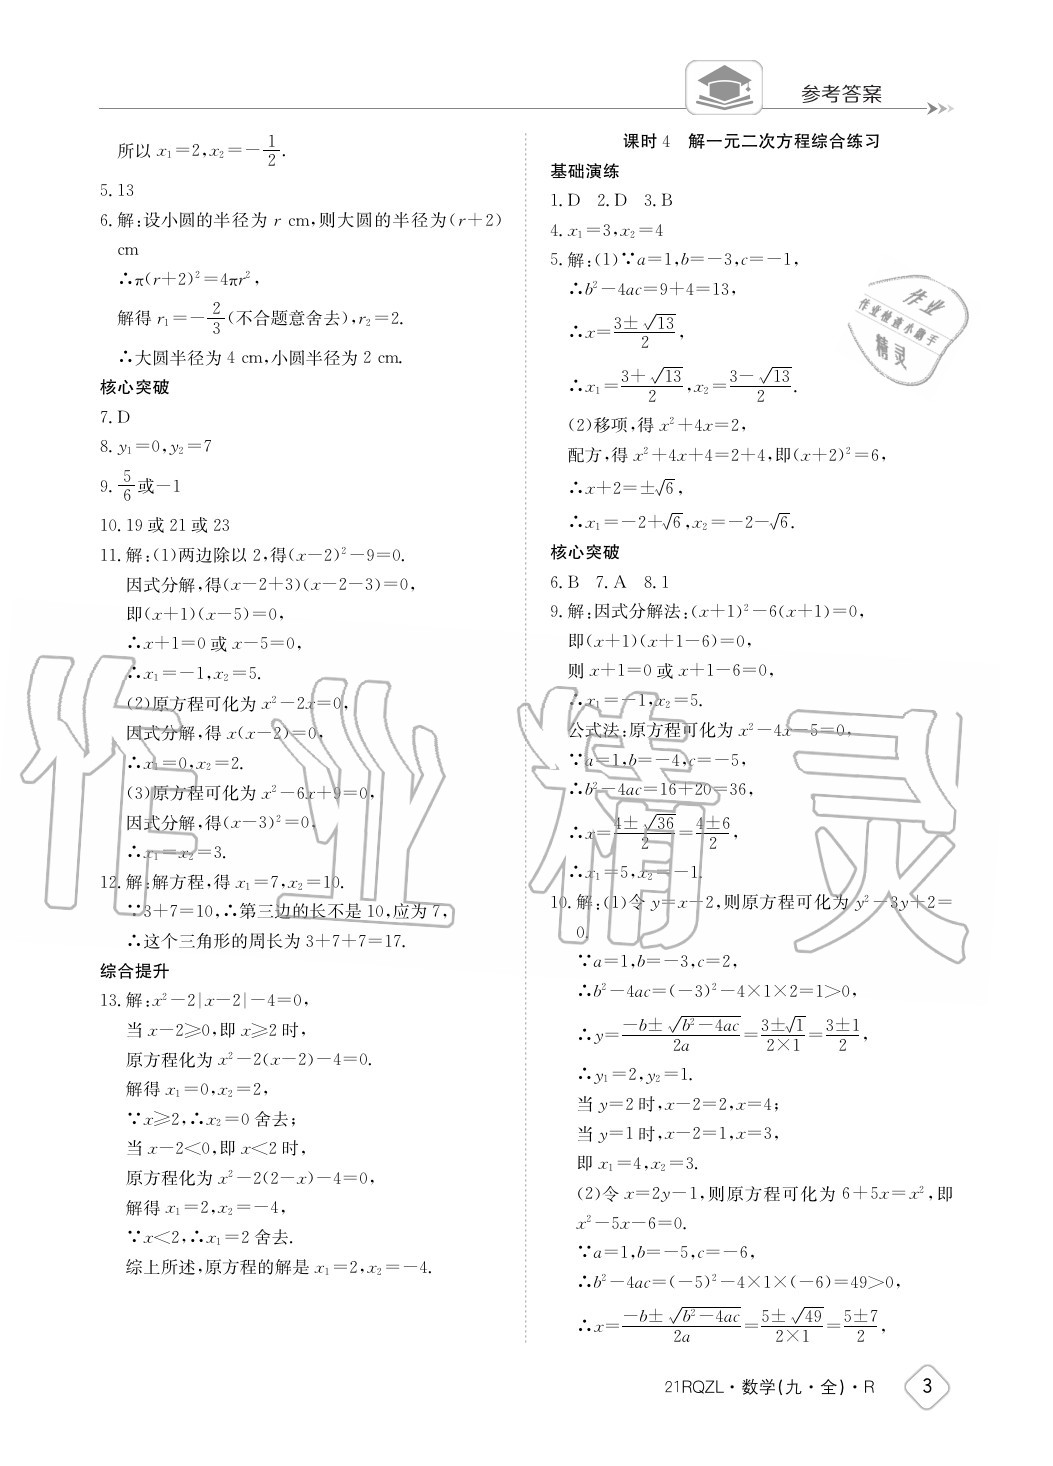 参考答案
所以 x₁=2,x₂=-1/2.
5. 13
6. 解:设小圆的半径为 r cm,则大圆的半径为(r+2)
cm
∴π(r+2)²=4πr²,
解得 r₁=-2/3(不合题意舍去),r₂=2.
∴大圆半径为 4 cm,小圆半径为 2 cm.
核心突破
7. D
8. y₁=0,y₂=7
9. 5/6或-1
10. 19 或 21 或 23
11. 解:(1)两边除以 2,得(x-2)²-9=0.
因式分解,得(x-2+3)(x-2-3)=0,
即(x+1)(x-5)=0,
∴x+1=0 或 x-5=0,
∴x₁=-1,x₂=5.
(2)原方程可化为 x²-2x=0,
因式分解,得 x(x-2)=0,
∴x₁=0,x₂=2.
(3)原方程可化为 x²-6x+9=0,
因式分解,得(x-3)²=0,
∴x₁=x₂=3.
12. 解:解方程,得 x₁=7,x₂=10.
∵3+7=10,∴第三边的长不是 10,应为 7,
∴这个三角形的周长为 3+7+7=17.
综合提升
13. 解:x²-2|x-2|-4=0,
当 x-2≥0,即 x≥2 时,
原方程化为 x²-2(x-2)-4=0.
解得 x₁=0,x₂=2,
∵x≥2,∴x₂=0 舍去;
当 x-2<0,即 x<2 时,
原方程化为 x²-2(2-x)-4=0,
解得 x₁=2,x₂=-4,
∵x<2,∴x₁=2 舍去.
综上所述,原方程的解是 x₁=2,x₂=-4.
课时 4 解一元二次方程综合练习
基础演练
1. D 2. D 3. B
4. x₁=3,x₂=4
5. 解:(1)∵a=1,b=-3,c=-1,
∴b²-4ac=9+4=13,
∴x=(3±√13)/2,
∴x₁=(3+√13)/2,x₂=(3-√13)/2.
(2)移项,得 x²+4x=2,
配方,得 x²+4x+4=2+4,即(x+2)²=6,
∴x+2=±√6,
∴x₁=-2+√6,x₂=-2-√6.
核心突破
6. B 7. A 8. 1
9. 解:因式分解法:(x+1)²-6(x+1)=0,
即(x+1)(x+1-6)=0,
则 x+1=0 或 x+1-6=0,
∴x₁=-1,x₂=5.
公式法:原方程可化为 x²-4x-5=0,
∵a=1,b=-4,c=-5,
∴b²-4ac=16+20=36,
∴x=(4±√36)/2=(4±6)/2,
∴x₁=5,x₂=-1.
10. 解:(1)令 y=x-2,则原方程可化为 y²-3y+2=
0.
∵a=1,b=-3,c=2,
∴b²-4ac=(-3)²-4×1×2=1>0,
∴y=(-b±√(b²-4ac))/2a=(3±√1)/(2×1)=(3±1)/2,
∴y₁=2,y₂=1.
当 y=2 时,x-2=2,x=4;
当 y=1 时,x-2=1,x=3,
即 x₁=4,x₂=3.
(2)令 x=2y-1,则原方程可化为 6+5x=x²,即
x²-5x-6=0.
∵a=1,b=-5,c=-6,
∴b²-4ac=(-5)²-4×1×(-6)=49>0,
∴x=(-b±√(b²-4ac))/2a=(5±√49)/(2×1)=(5±7)/2,
作业
作业检查小助手
精灵
作业精灵
21RQZL·数学(九·全)·R 3